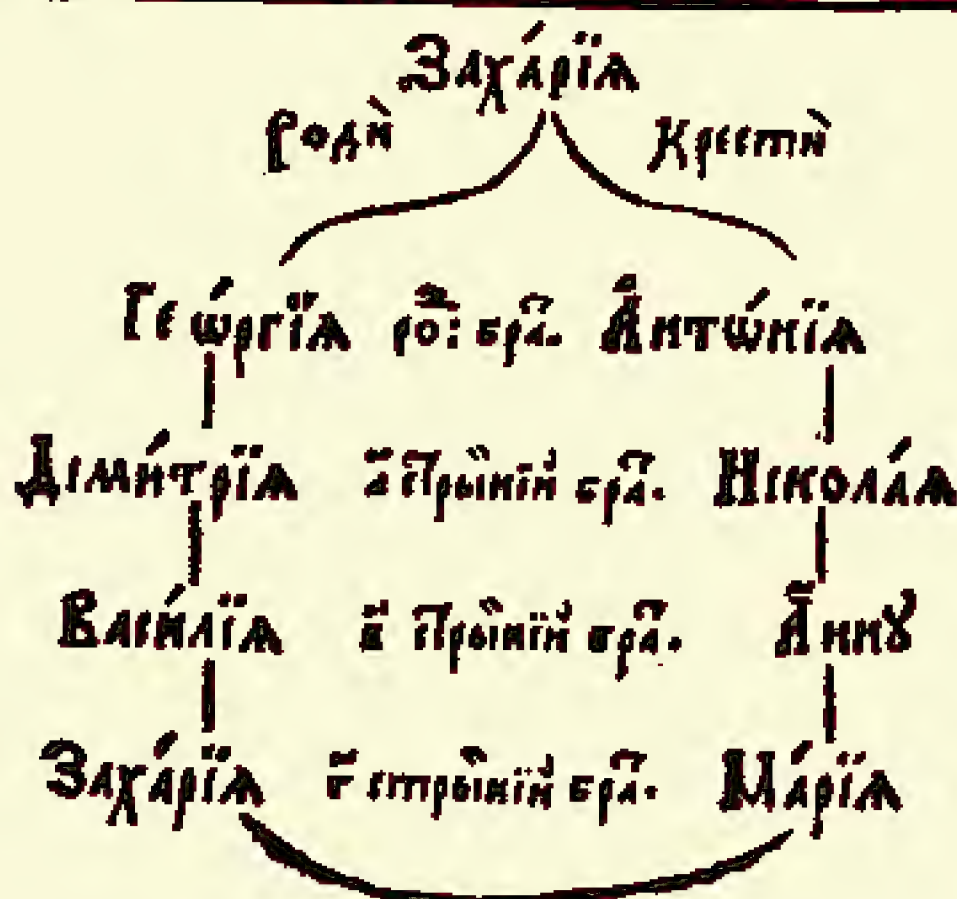 Заха́рїѧ
роди̇̀ крести̇̀
Геѡ́ргїѧ ро: бра. А҆нтѡ́нїѧ
Дїми́трїѧ а҃ стрыйнїй бра. Нїкола́ѧ
Васи́лїѧ в҃ стрыйнїй бра. А҆ннꙋ
Заха́рїѧ г҃ стрыйнїй бра. Ма́рїѧ